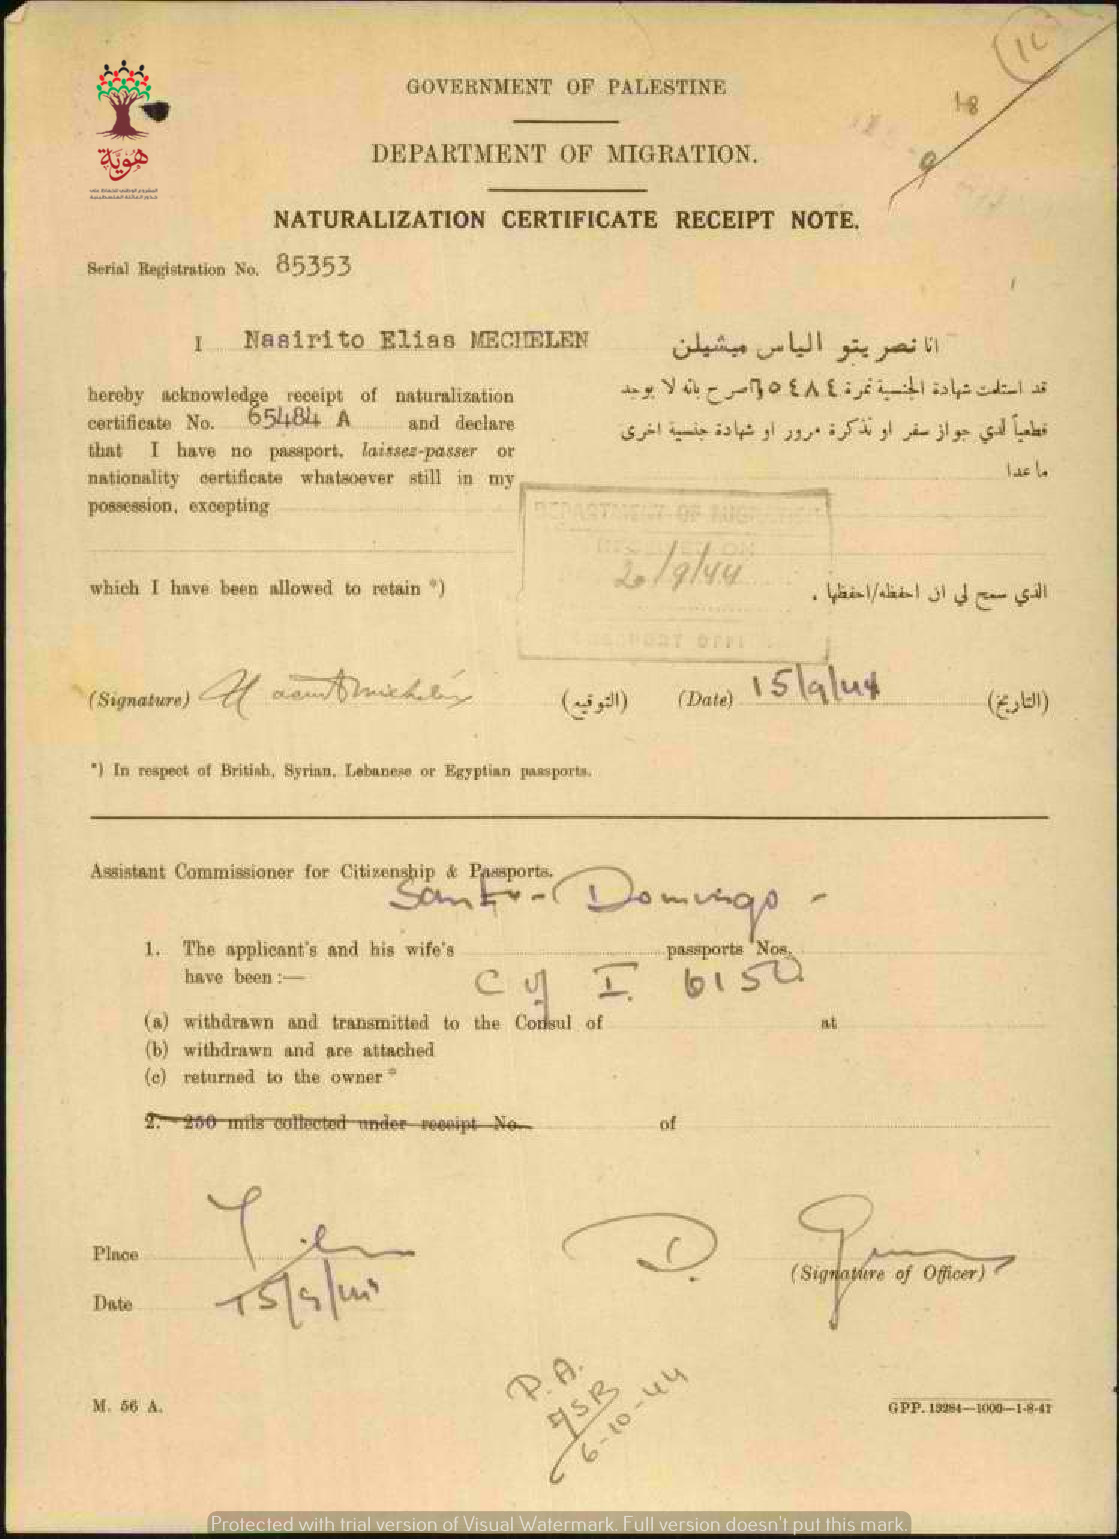 11
18
9
هوية
GOVERNMENT OF PALESTINE
DEPARTMENT OF MIGRATION.
NATURALIZATION CERTIFICATE RECEIPT NOTE.
Serial Registration No. 85353
I Nasirito Elias MECHELEN
انا نصر يتو الياس ميشيلن
hereby acknowledge receipt of naturalization
certificate No. 65484 A and declare
that I have no passport, laissez-passer or
nationality certificate whatsoever still in my
possession, excepting
قد استلمت شهادة الجنسية نمرة ٦٥٤٨٤ اصرح بانه لا يوجد
قطعياً لدي جواز سفر او تذكرة مرور او شهادة جنسية اخرى
ما عدا
DEPARTMENT OF MIGRATION
RECEIVED ON
20/9/44
which I have been allowed to retain *)
الذي سمح لي ان احفظه/احفظها .
(Signature) (التوقيع) (Date) 15/9/44 (التاريخ)
*) In respect of British, Syrian, Lebanese or Egyptian passports.
Assistant Commissioner for Citizenship & Passports.
Santo - Domingo -
1. The applicant's and his wife's passports Nos.
have been :—
I. 6150
(a) withdrawn and transmitted to the Consul of at
(b) withdrawn and are attached
(c) returned to the owner *
2. 250 mils collected under receipt No. of
Place
(Signature of Officer)
Date 15/9/44
P.A.
6-10-44
M. 56 A.
GPP. 13284—1000—1-8-41
Protected with trial version of Visual Watermark. Full version doesn't put this mark.